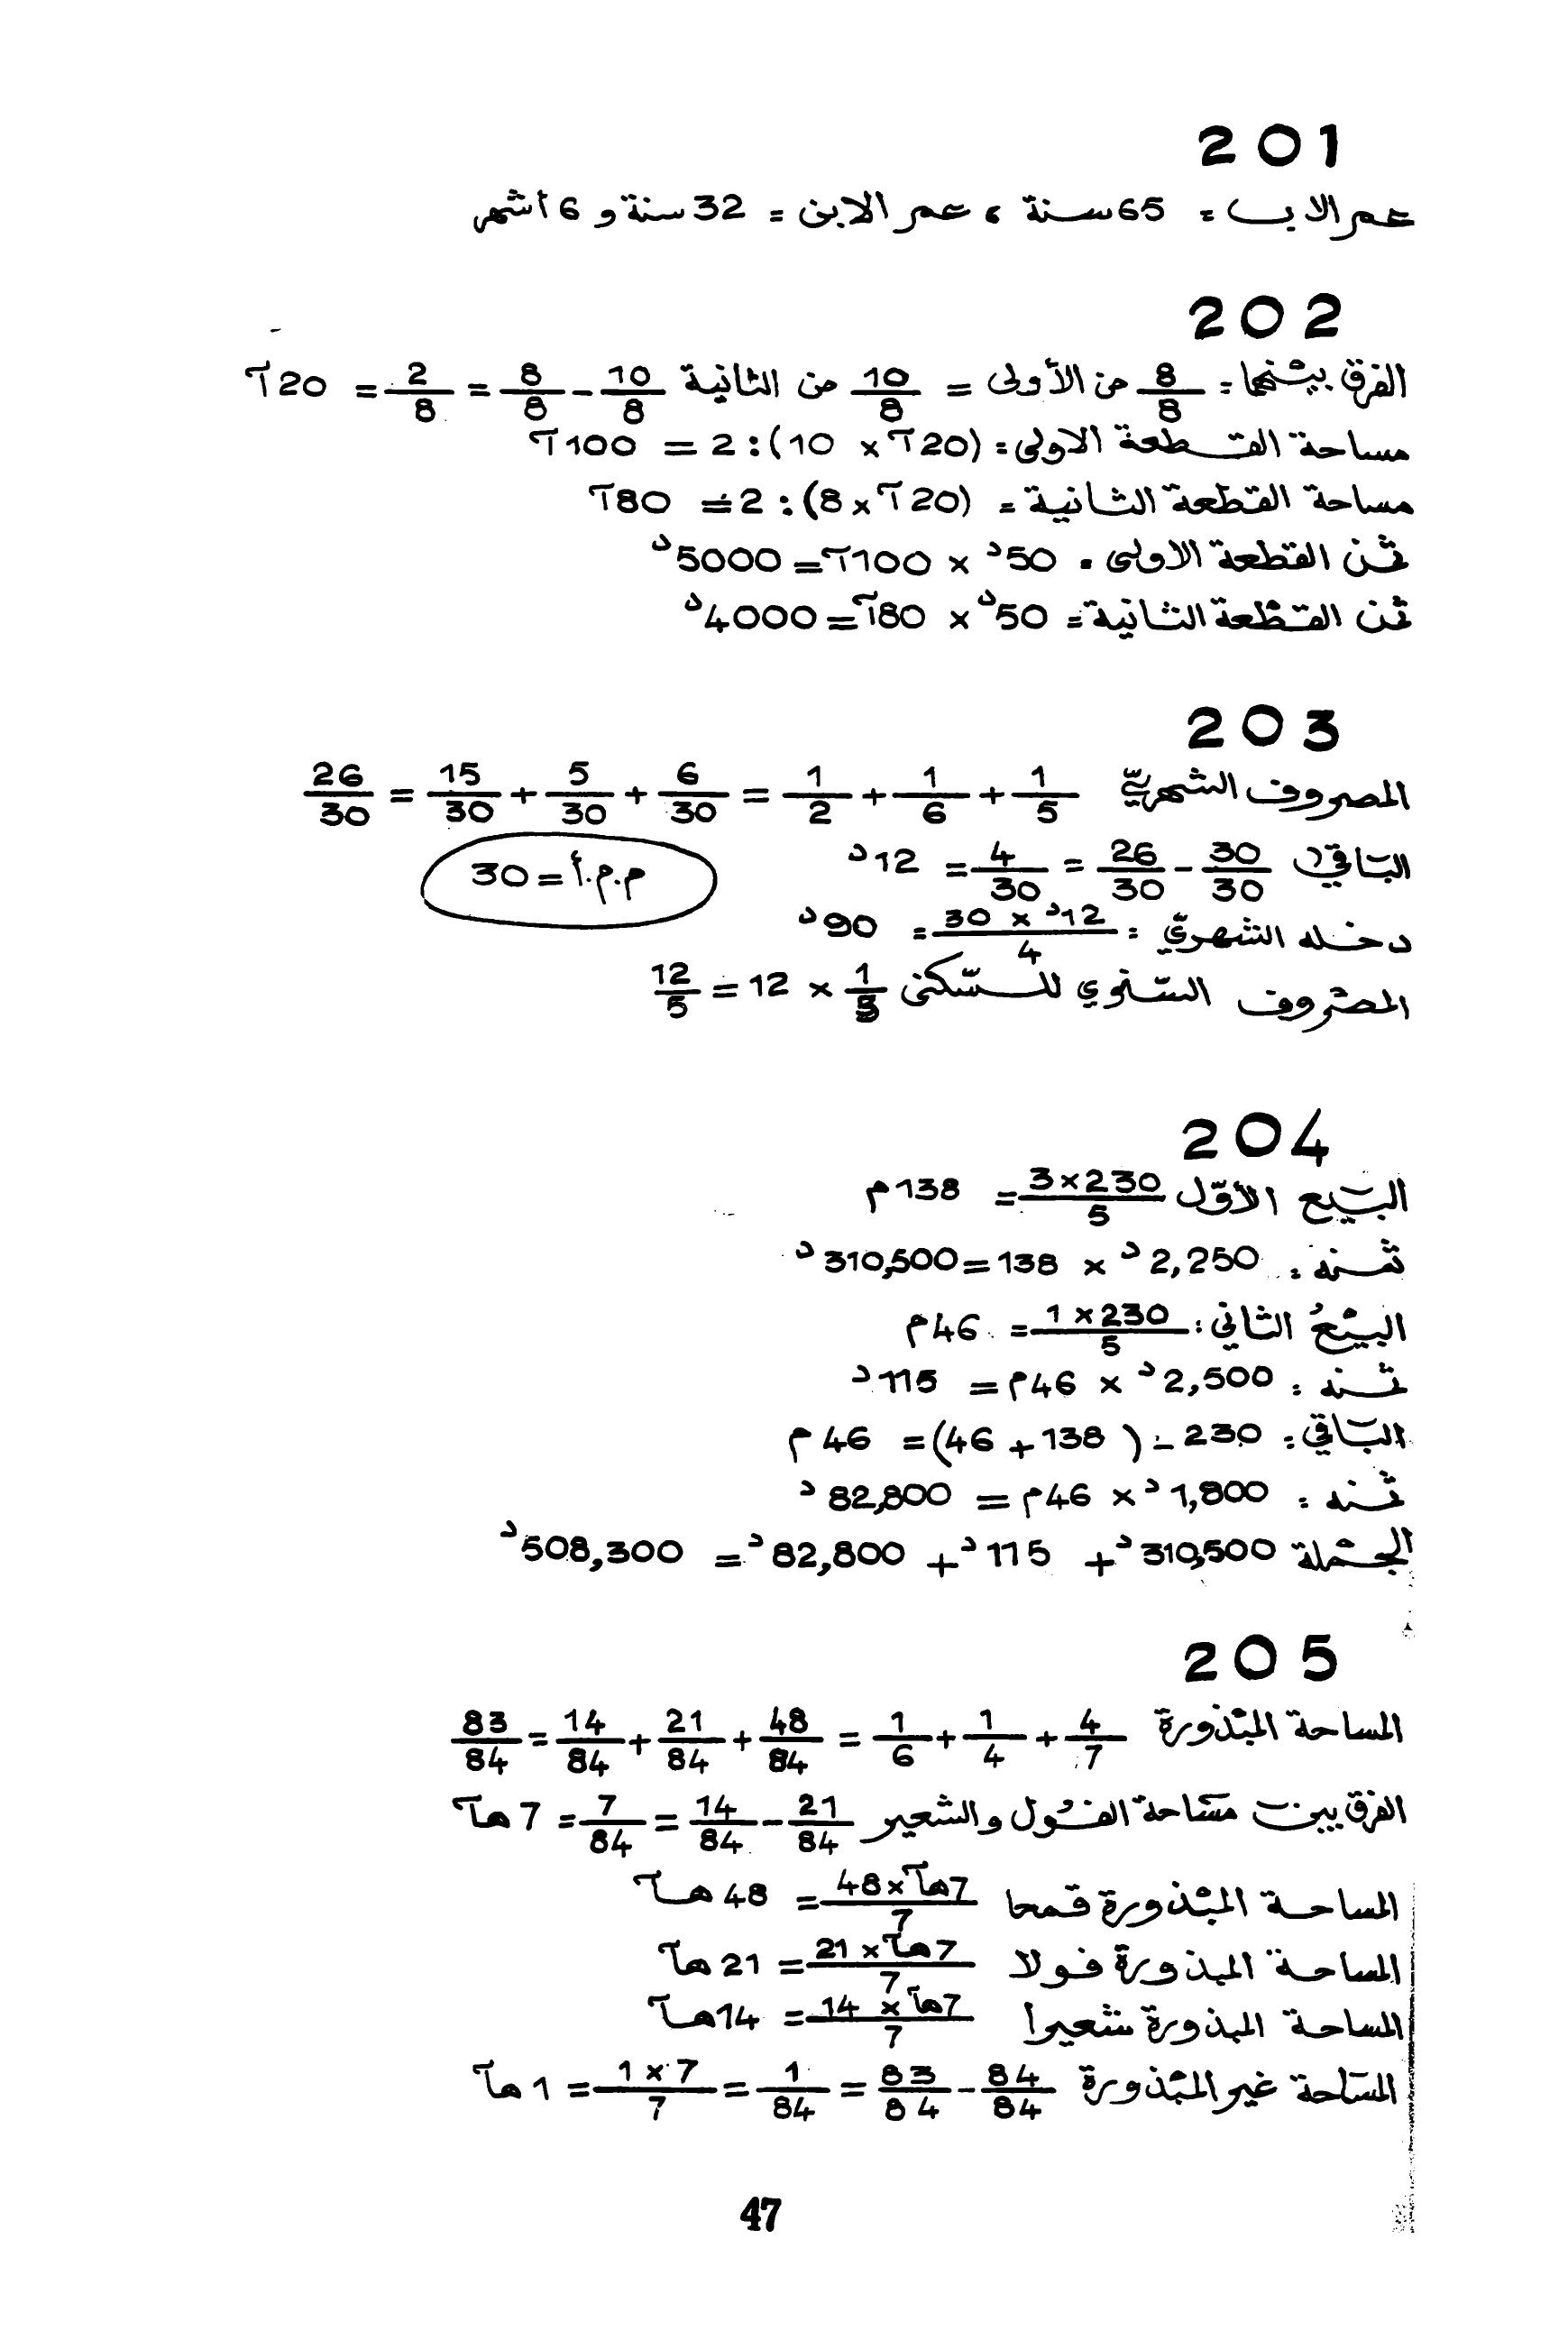 201
عمر الاب = 65 سنة ، عمر الابن = 32 سنة و 6 أشهر
202
الفرق بينهما : 8/8 من الأولى = 10/8 من الثانية 10/8 - 8/8 = 2/8 = 20 آ
مساحة القطعة الاولى = (20 آ × 10) : 2 = 100 آ
مساحة القطعة الثانية = (20 آ × 8) : 2 = 80 آ
ثمن القطعة الاولى = 50 د × 100 آ = 5000 د
ثمن القطعة الثانية = 50 د × 80 آ = 4000 د
203
المصروف الشهريّ 1/5 + 1/6 + 1/2 = 6/30 + 5/30 + 15/30 = 26/30
الباقي 30/30 - 26/30 = 4/30 = 12 د
م.م.أ = 30
دخله الشهريّ : 12 د × 30 / 4 = 90 د
المصروف السّنوي للسّكنى 1/5 × 12 = 12/5
204
البيع الأوّل 230 × 3 / 5 = 138 م
ثمنه : 2,250 د × 138 = 310,500 د
البيع الثاني : 230 × 1 / 5 = 46 م
ثمنه : 2,500 د × 46 م = 115 د
الباقي : 230 - (138 + 46) = 46 م
ثمنه : 1,800 د × 46 م = 82,800 د
الجملة 310,500 د + 115 د + 82,800 د = 508,300 د
205
المساحة المبذورة 4/7 + 1/4 + 1/6 = 48/84 + 21/84 + 14/84 = 83/84
الفرق بين مساحة الفول والشعير 21/84 - 14/84 = 7/84 = 7 هآ
المساحة المبذورة قمحا 7 هآ × 48 / 7 = 48 هآ
المساحة المبذورة فولا 7 هآ × 21 / 7 = 21 هآ
المساحة المبذورة شعيرا 7 هآ × 14 / 7 = 14 هآ
المساحة غير المبذورة 84/84 - 83/84 = 1/84 = 7 × 1 / 7 = 1 هآ
47